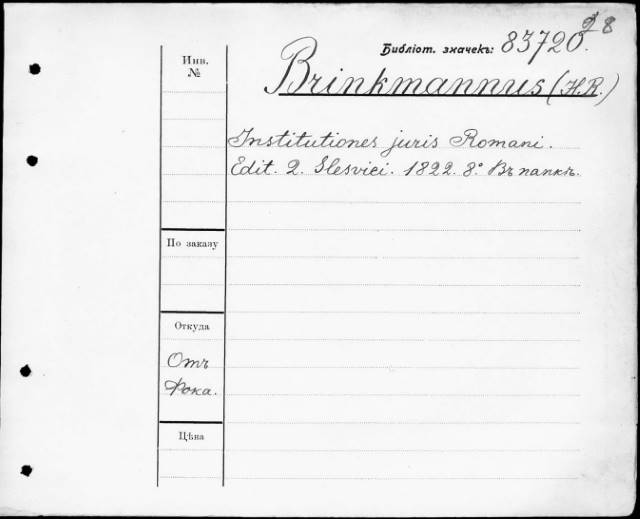 28
Библіот. значекъ: 83720.
Инв.
№
Brinkmannus (H.R.)
Institutiones juris Romani.
Edit. 2. Slesvici. 1822. 8.° Въ папкѣ.
По заказу
Откуда
Отъ
Фока.
Цѣна